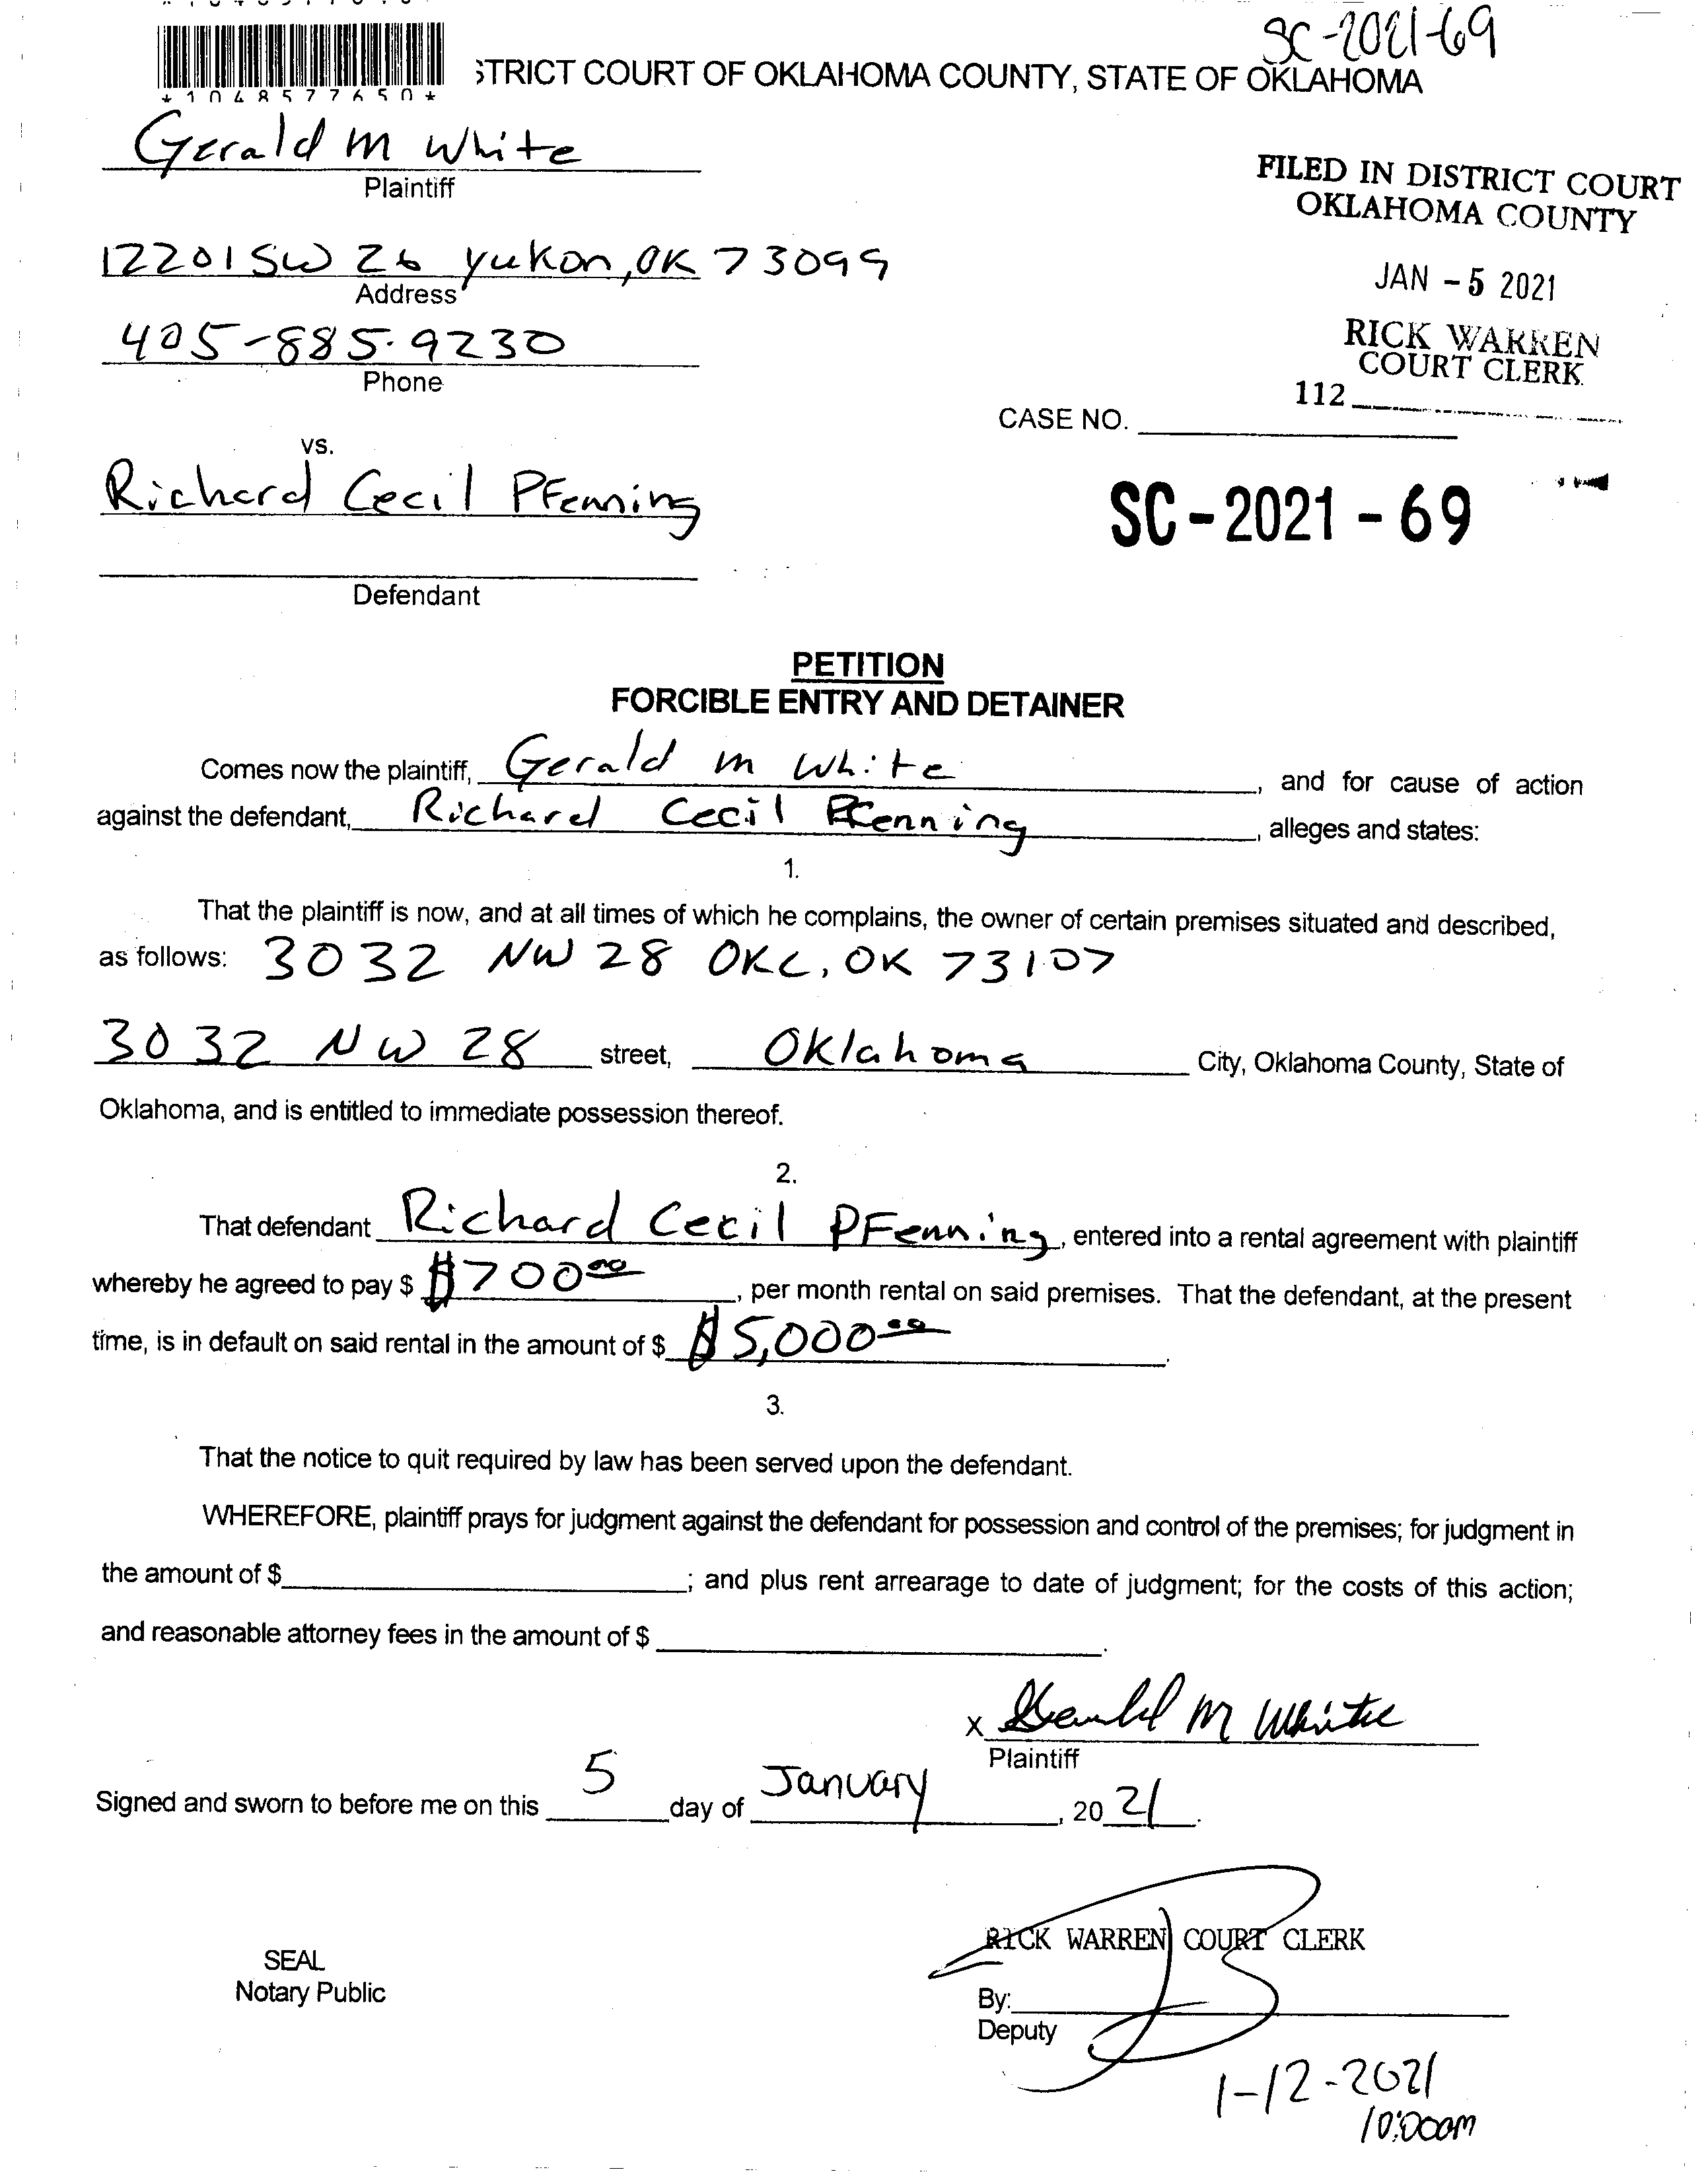 SC-2021-69
*1048577650*
STRICT COURT OF OKLAHOMA COUNTY, STATE OF OKLAHOMA
Gerald M White
Plaintiff
FILED IN DISTRICT COURT
OKLAHOMA COUNTY
12201 SW 26 Yukon, OK 73099
Address
JAN - 5 2021
405-885-9230
Phone
RICK WARREN
COURT CLERK
112
CASE NO.
vs.
Richard Cecil PFenning
SC - 2021 - 69
Defendant
PETITION
FORCIBLE ENTRY AND DETAINER
Comes now the plaintiff, Gerald M White, and for cause of action
against the defendant, Richard Cecil PFenning, alleges and states:
1.
That the plaintiff is now, and at all times of which he complains, the owner of certain premises situated and described,
as follows: 3032 NW 28 OKC, OK 73107
3032 NW 28 street, Oklahoma City, Oklahoma County, State of
Oklahoma, and is entitled to immediate possession thereof.
2.
That defendant Richard Cecil PFenning, entered into a rental agreement with plaintiff
whereby he agreed to pay $ $700.00, per month rental on said premises. That the defendant, at the present
time, is in default on said rental in the amount of $ $5,000.00.
3.
That the notice to quit required by law has been served upon the defendant.
WHEREFORE, plaintiff prays for judgment against the defendant for possession and control of the premises; for judgment in
the amount of $ ; and plus rent arrearage to date of judgment; for the costs of this action;
and reasonable attorney fees in the amount of $ .
x Gerald M White
Plaintiff
Signed and sworn to before me on this 5 day of January, 2021.
RICK WARREN COURT CLERK
SEAL
Notary Public
By:
Deputy
1-12-2021
10:00am